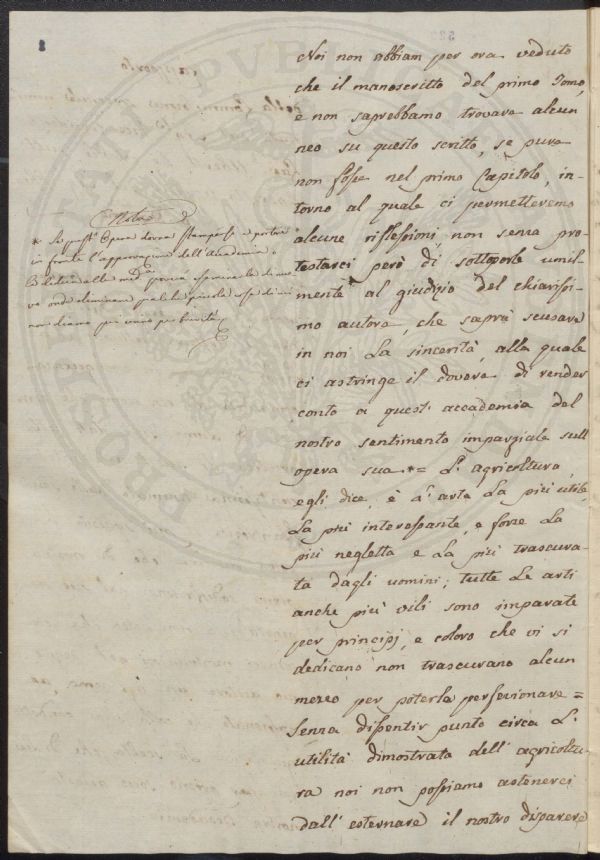 8
Noi non abbiam per ora veduto
che il manoscritto del primo Tomo,
e non saprebbamo trovare alcun
neo su questo scritto, se pure
non fosse nel primo Capitolo, in-
torno al quale ci permetteremo
alcune riflessioni, non senza pro-
testarci però di sottoporle umil-
mente al giudizio del chiarissi-
mo autore, che saprà scusare
in noi la sincerità, alla quale
ci astringe il dovere di render
conto a quest' accademia del
nostro sentimento imparziale sull
opera sua *= L' agricoltura,
egli dice, è l' arte la più utile,
la più interessante, e forse la
più negletta e la più trascura-
ta dagli uomini; tutte le arti
anche più vili sono imparate
per principj, e coloro che vi si
dedicano non trascurano alcun
mezzo per poterla perfezionare =
Senza dissentir punto circa l'
utilità dimostrata dell' agricoltu
ra noi non possiamo astenerci
dall' esternare il nostro disparere
Nota
* Se quest' Opera dovesse stamparsi e portare
in fronte l'approvazione dell'Accademia